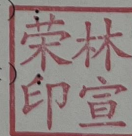 林宣
荣印